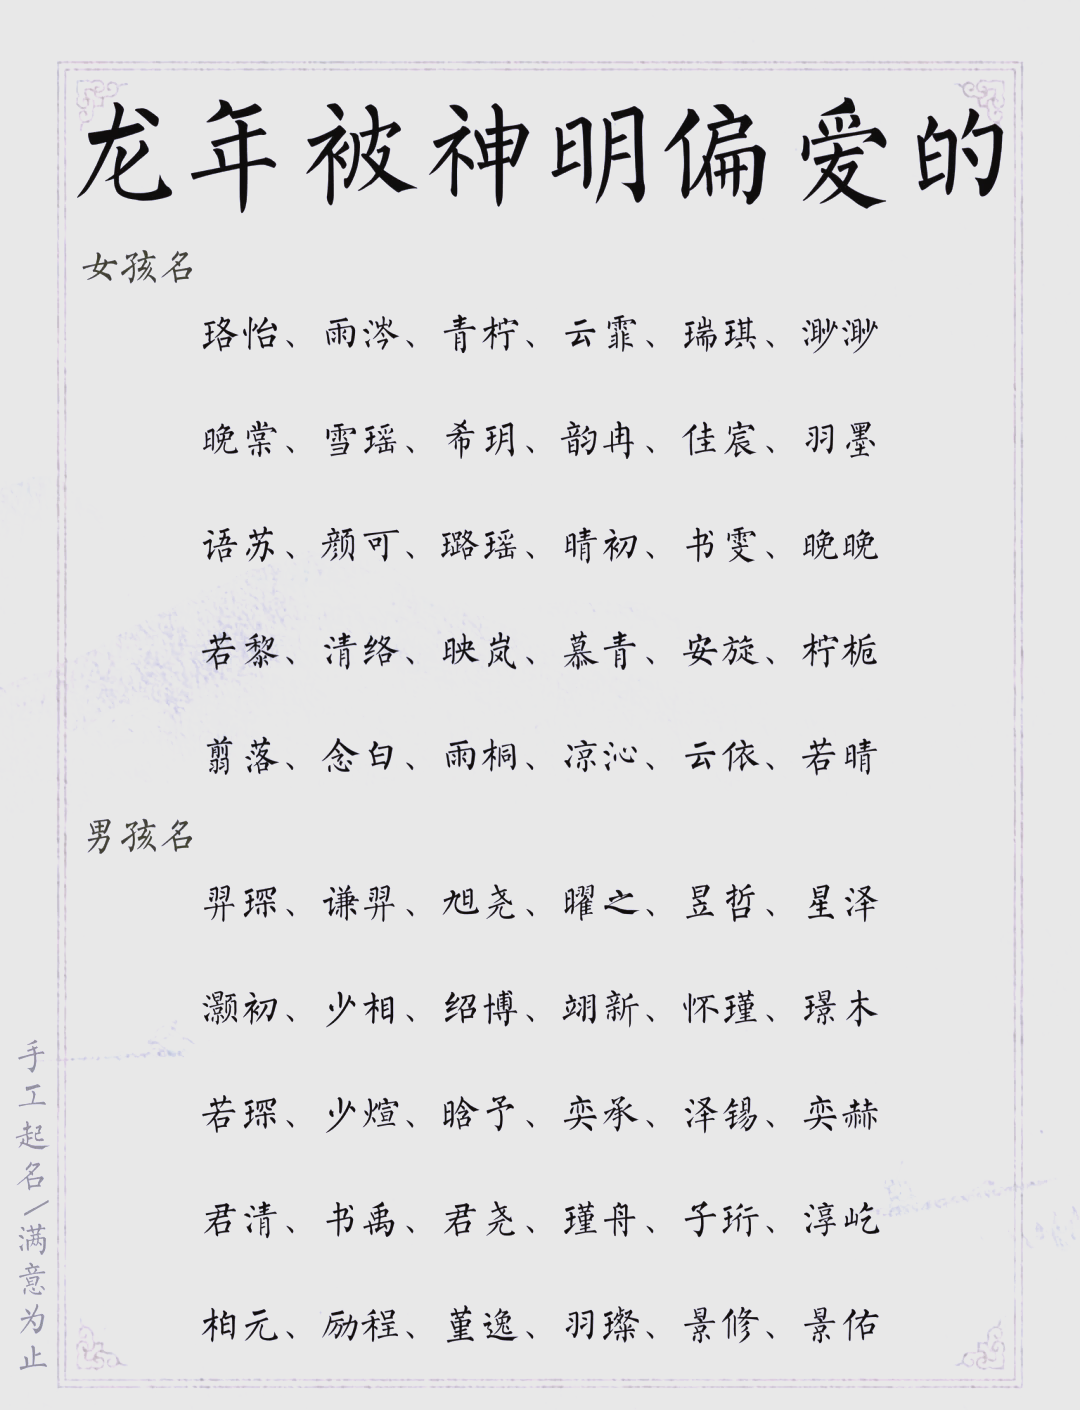 龙年被神明偏爱的
女孩名
珞怡、雨涔、青柠、云霏、瑞琪、渺渺
晚棠、雪瑶、希玥、韵冉、佳宸、羽墨
语苏、颜可、璐瑶、晴初、书雯、晚晚
若黎、清络、映岚、慕青、安旋、柠栀
翦落、念白、雨桐、凉沁、云依、若晴
男孩名
羿琛、谦羿、旭尧、曜之、昱哲、星泽
灏初、少相、绍博、翊新、怀瑾、璟木
若琛、少煊、晗予、奕承、泽锡、奕赫
君清、书禹、君尧、瑾舟、子珩、淳屹
柏元、励程、堇逸、羽璨、景修、景佑
手工起名/满意为止